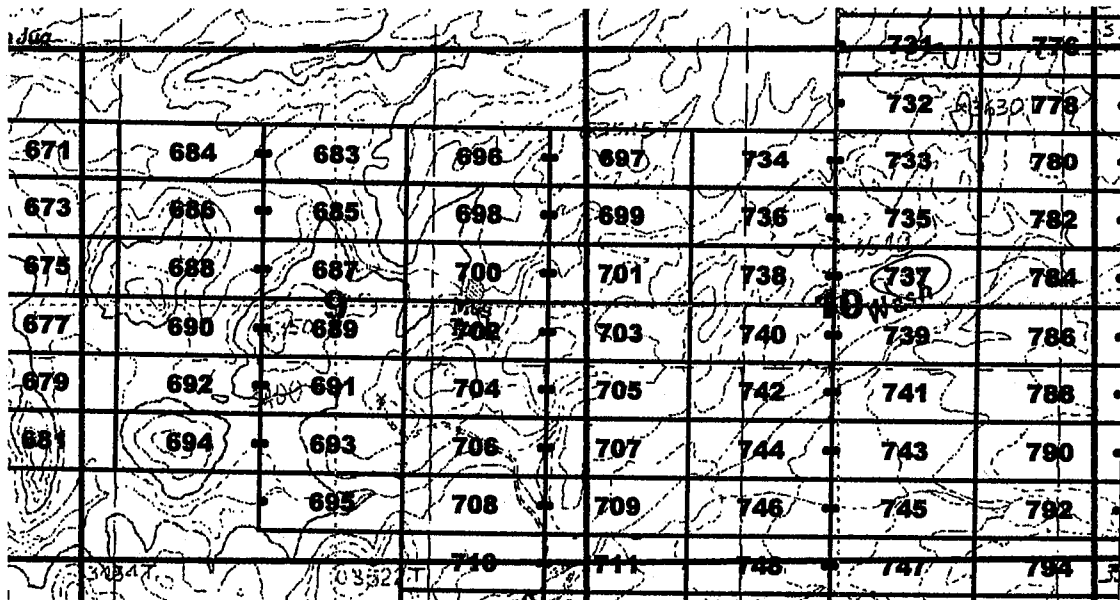 731 776
732 778
671 684 683 696 697 734 733 780
673 686 685 698 699 736 735 782
675 688 687 700 701 738 737 784
9 10 Wash
677 690 689 702 703 740 739 786
679 692 691 704 705 742 741 788
681 694 693 706 707 744 743 790
695 708 709 746 745 792
710 711 748 747 794